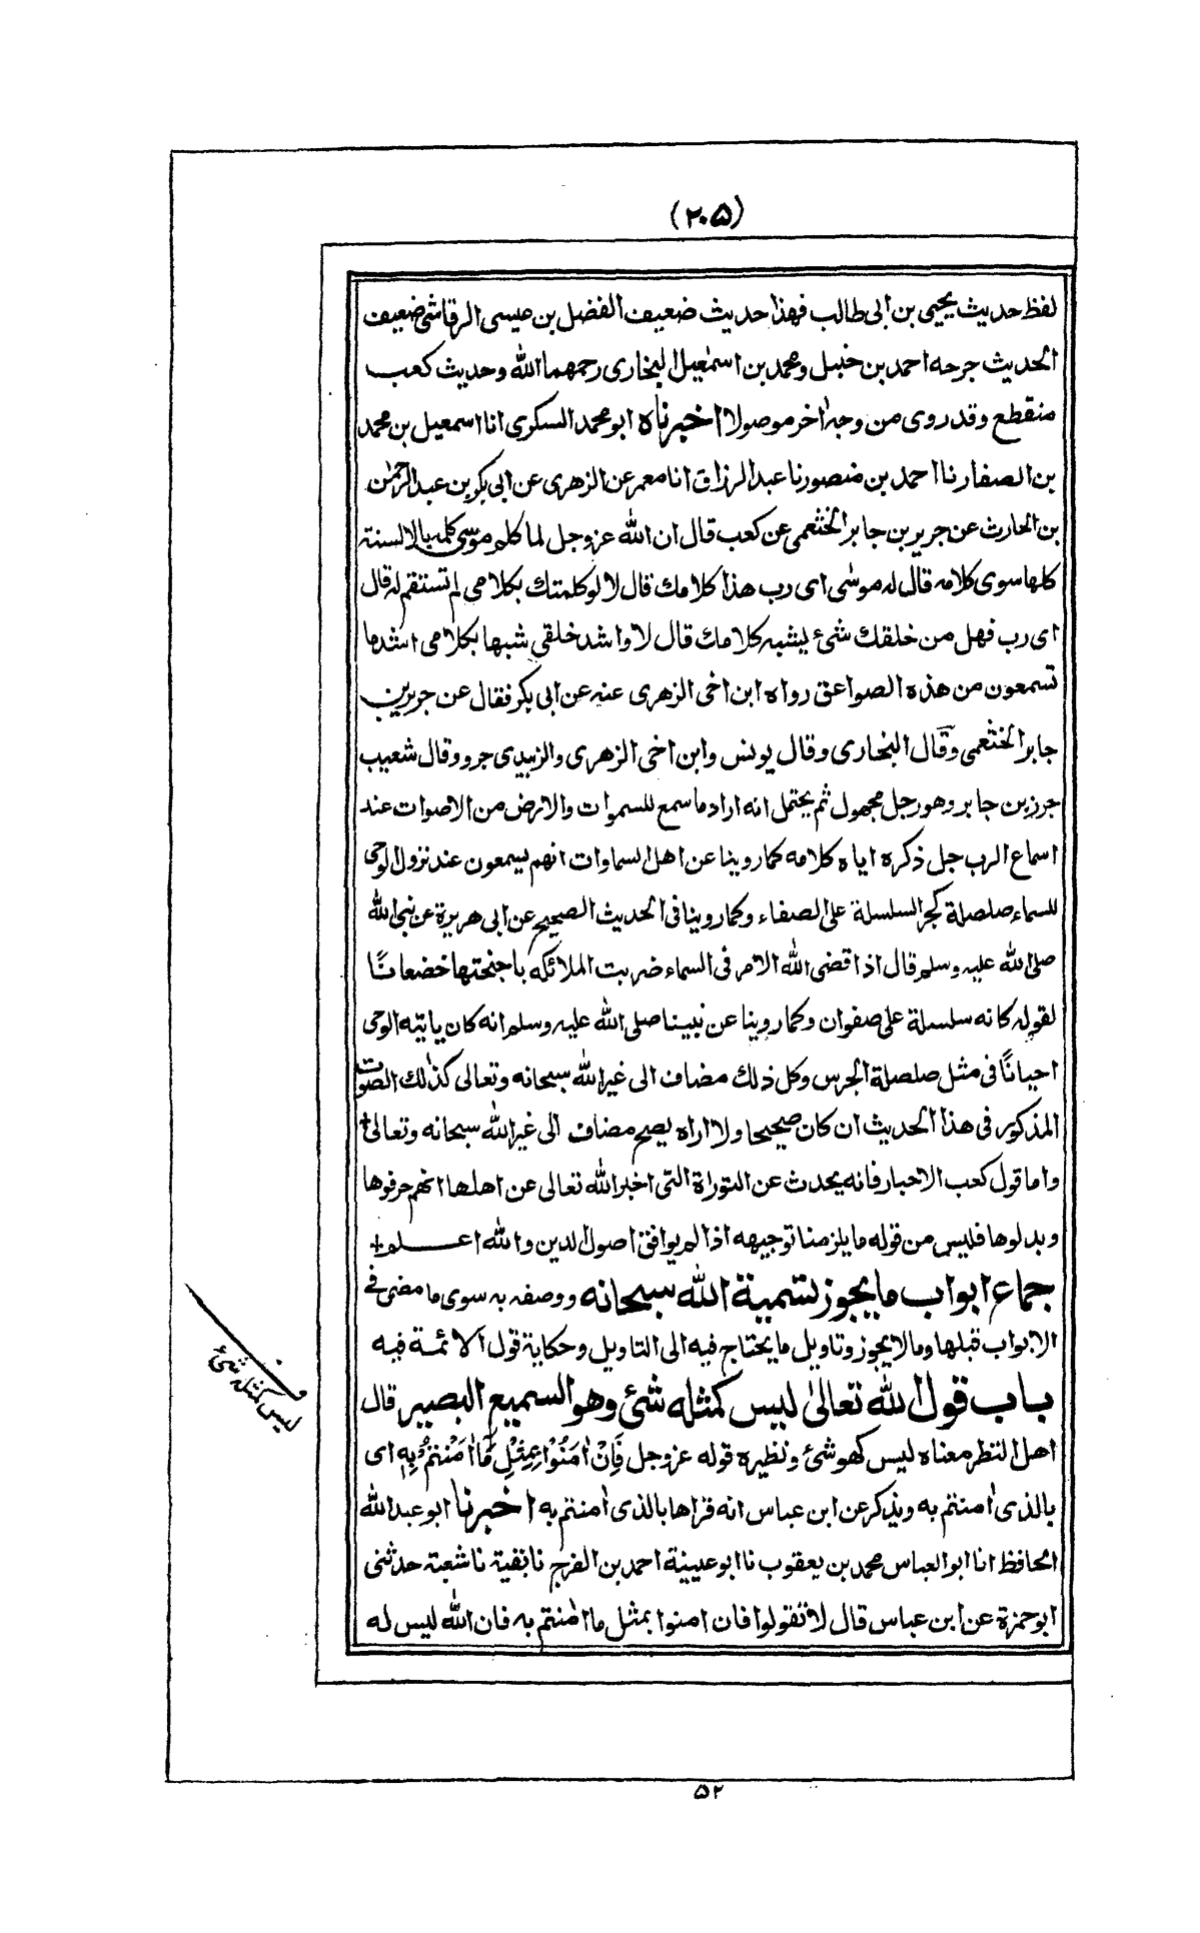 (٢٠۵)
لفظ حديث يحيى بن ابى طالب فهذا حديث ضعيف الفضل بن عيسى الرقاشى ضعيف
الحديث جرحه احمد بن حنبل ومحمد بن اسمٰعيل البخارى رحمهما الله وحديث كعب
منقطع وقد روى من وجه اٰخر موصولا اخبرناه ابو محمد السكرى انا اسمعيل بن محمد
بن الصفار نا احمد بن منصور نا عبد الرزاق انا معمر عن الزهرى عن ابى بكر بن عبد الرحمٰن
بن الحارث عن جرير بن جابر الخثعمى عن كعب قال ان الله عز وجل لما كلم موسى كلمه بالالسنة
كلها سوى كلامه قال له موسٰى اى رب هذا كلامك قال لا لو كلمتك بكلامى لم تستقم له قال
اى رب فهل من خلقك شئ يشبه كلامك قال لا واشد خلقى شبها بكلامى اشد ما
تسمعون من هذه الصواعق رواه ابن اخى الزهرى عنه عن ابى بكر فقال عن جرير بن
جابر الخثعمى وقال البخارى وقال يونس وابن اخى الزهرى والزبيدى جرو وقال شعيب
جرز بن جابر وهو رجل مجهول ثم يحتمل انه اراد ما سمع للسموات والارض من الاصوات عند
اسماع الرب جل ذكره اياه كلامه كما روينا عن اهل السماوات انهم يسمعون عند نزول الوحى
للسماء صلصلة كجر السلسلة على الصفاء وكما روينا فى الحديث الصحيح عن ابى هريرة عن نبى الله
صلى الله عليه وسلم قال اذا قضى الله الامر فى السماء ضربت الملائكه باجنحتها خضعانًا
لقوله كانه سلسلة على صفوان وكما روينا عن نبينا صلى الله عليه وسلم انه كان ياتيه الوحى
احيانًا فى مثل صلصلة الجرس وكل ذلك مضاف الى غير الله سبحانه وتعالى كذلك الصوت
المذكور فى هذا الحديث ان كان صحيحا ولا اراه يصح مضاف الى غير الله سبحانه وتعالى
واما قول كعب الاحبار فانه يحدث عن التوراة التى اخبر الله تعالى عن اهلها انهم حرفوها
وبدلوها فليس من قوله ما يلزمنا توجيهه اذا لم يوافق اصول الدين والله اعلم
جماع ابواب ما يجوز تسمية الله سبحانه ووصفه به سوى ما مضى فى
الابواب قبلها وما لا يجوز وتاويل ما يحتاج فيه الى التاويل وحكاية قول الائمة فيه
باب قول الله تعالىٰ ليس كمثله شئ وهو السميع البصير قال
اهل النظر معناه ليس كهو شئ ونظيره قوله عز وجل فَاِنْ اٰمَنُوْا بِمِثْلِ مَآ اٰمَنْتُمْ بِهٖ اى
بالذى اٰمنتم به ويذكر عن ابن عباس انه قراها بالذى اٰمنتم به اخبرنا ابو عبد الله
الحافظ انا ابو العباس محمد بن يعقوب نا ابو عيينة احمد بن الفرج نا بقية نا شعبة حدثنى
ابو حمزة عن ابن عباس قال لا تقولوا فان امنوا بمثل ما اٰمنتم به فان الله ليس له
ليس كمثله شئ
۵٢